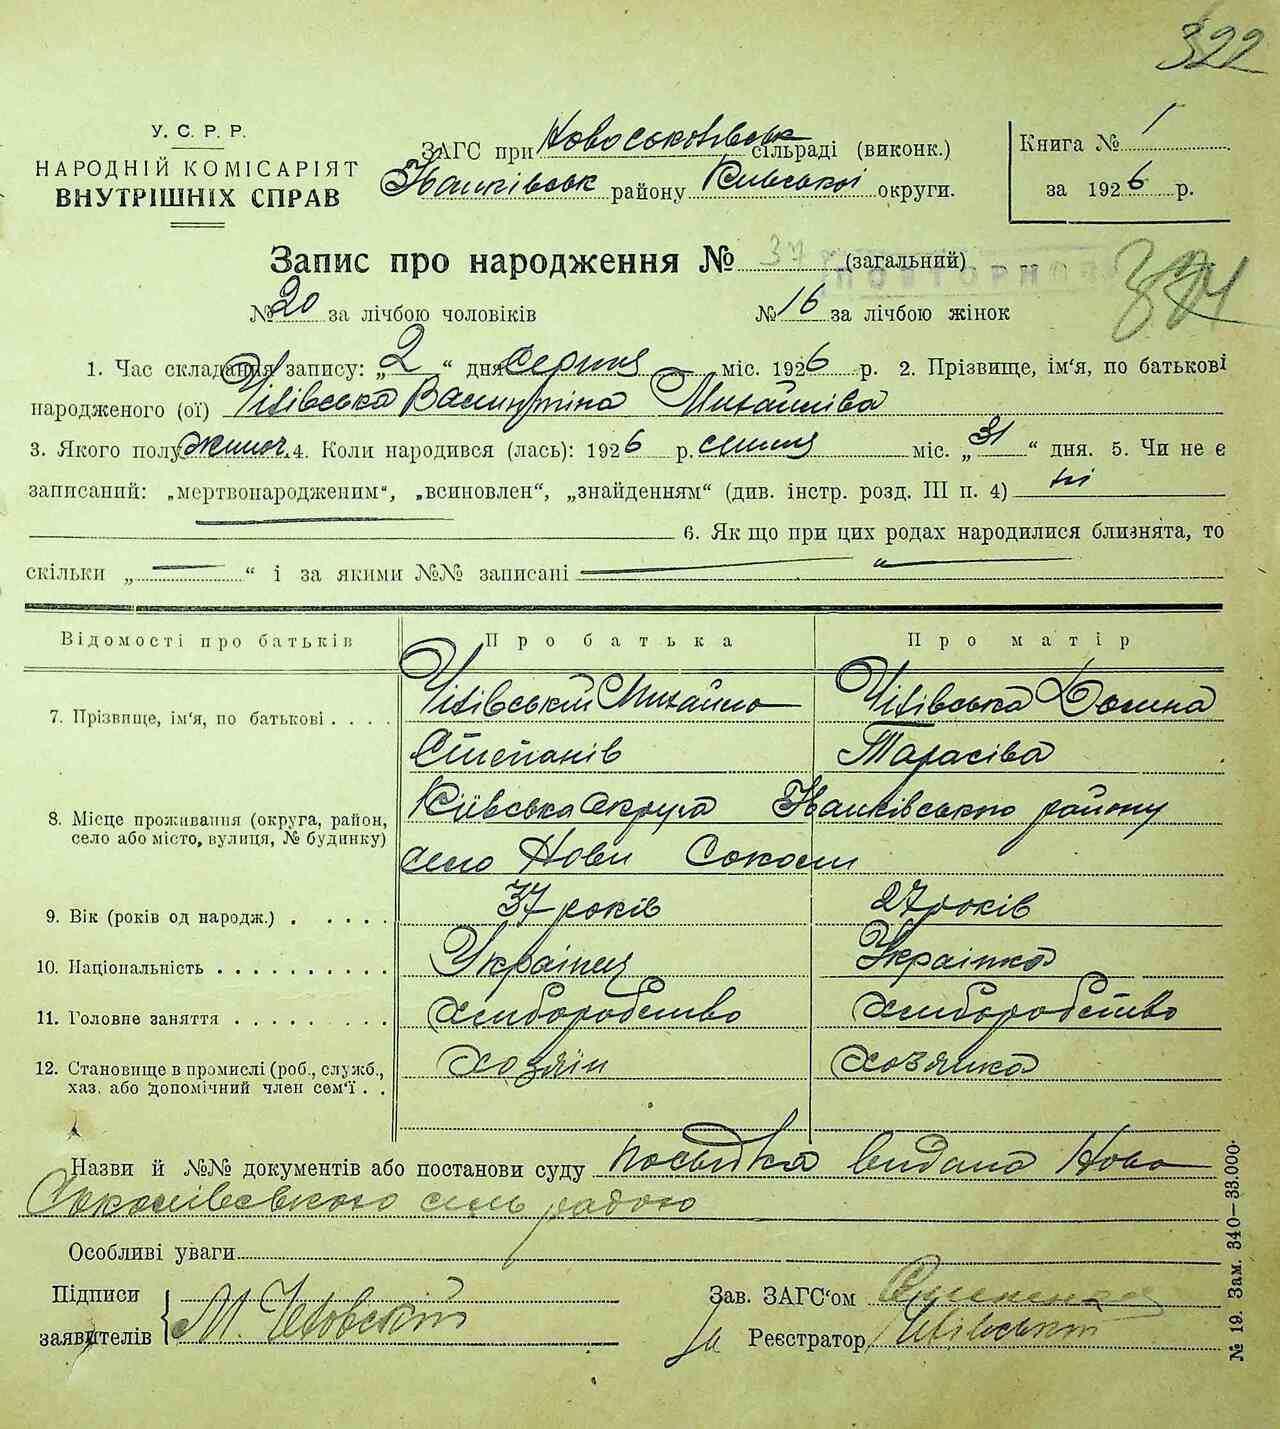 322
У. С. Р. Р.
НАРОДНІЙ КОМІСАРІЯТ
ВНУТРІШНІХ СПРАВ
ЗАГС при Новосоколівськ сільраді (виконк.)
Іванківськ району Київської округи.
Книга № 1
за 1926 р.
Запис про народження № 37 (загальний)
ПОВТОРНО
№ 20 за лічбою чоловіків № 16 за лічбою жінок
1. Час складання запису: „2“ дня серпня міс. 1926 р. 2. Прізвище, ім‘я, по батькові
народженого (ої) Чіхівська Валинтіна Михайліва
3. Якого полу жіноч. 4. Коли народився (лась): 1926 р. липня міс. „31“ дня. 5. Чи не є
записаний: „мертвонародженим“, „всиновлен“, „знайденням“ (див. інстр. розд. III п. 4) ні
6. Як що при цих родах народилися близнята, то
скільки „ “ і за якими №№ записані
Відомості про батьків Про батька Про матір
7. Прізвище, ім‘я, по батькові . . . . Чіхівський Михайло Чіхівська Домна
Степанів Тарасіва
8. Місце проживання (округа, район, село або місто, вулиця, № будинку) Київська округа Іванківського району
село Нови Соколи
9. Вік (років од народж.) . . . . . 37 років 27 років
10. Національність . . . . . . . . . . Українця Українка
11. Головне заняття . . . . . . . . Хлиборобство Хлиборобство
12. Становище в промислі (роб., служб., хаз. або допомічний член сем‘ї . . Хозяін Хозяйка
Назви й №№ документів або постанови суду посьвідка видана Ново
Соколівською сильрадою
Особливі уваги
Підписи
заявителів М. Чеховскій
Зав. ЗАГС‘ом
За Реєстратор Чіхівський
№ 19. Зам. 340—33.000.